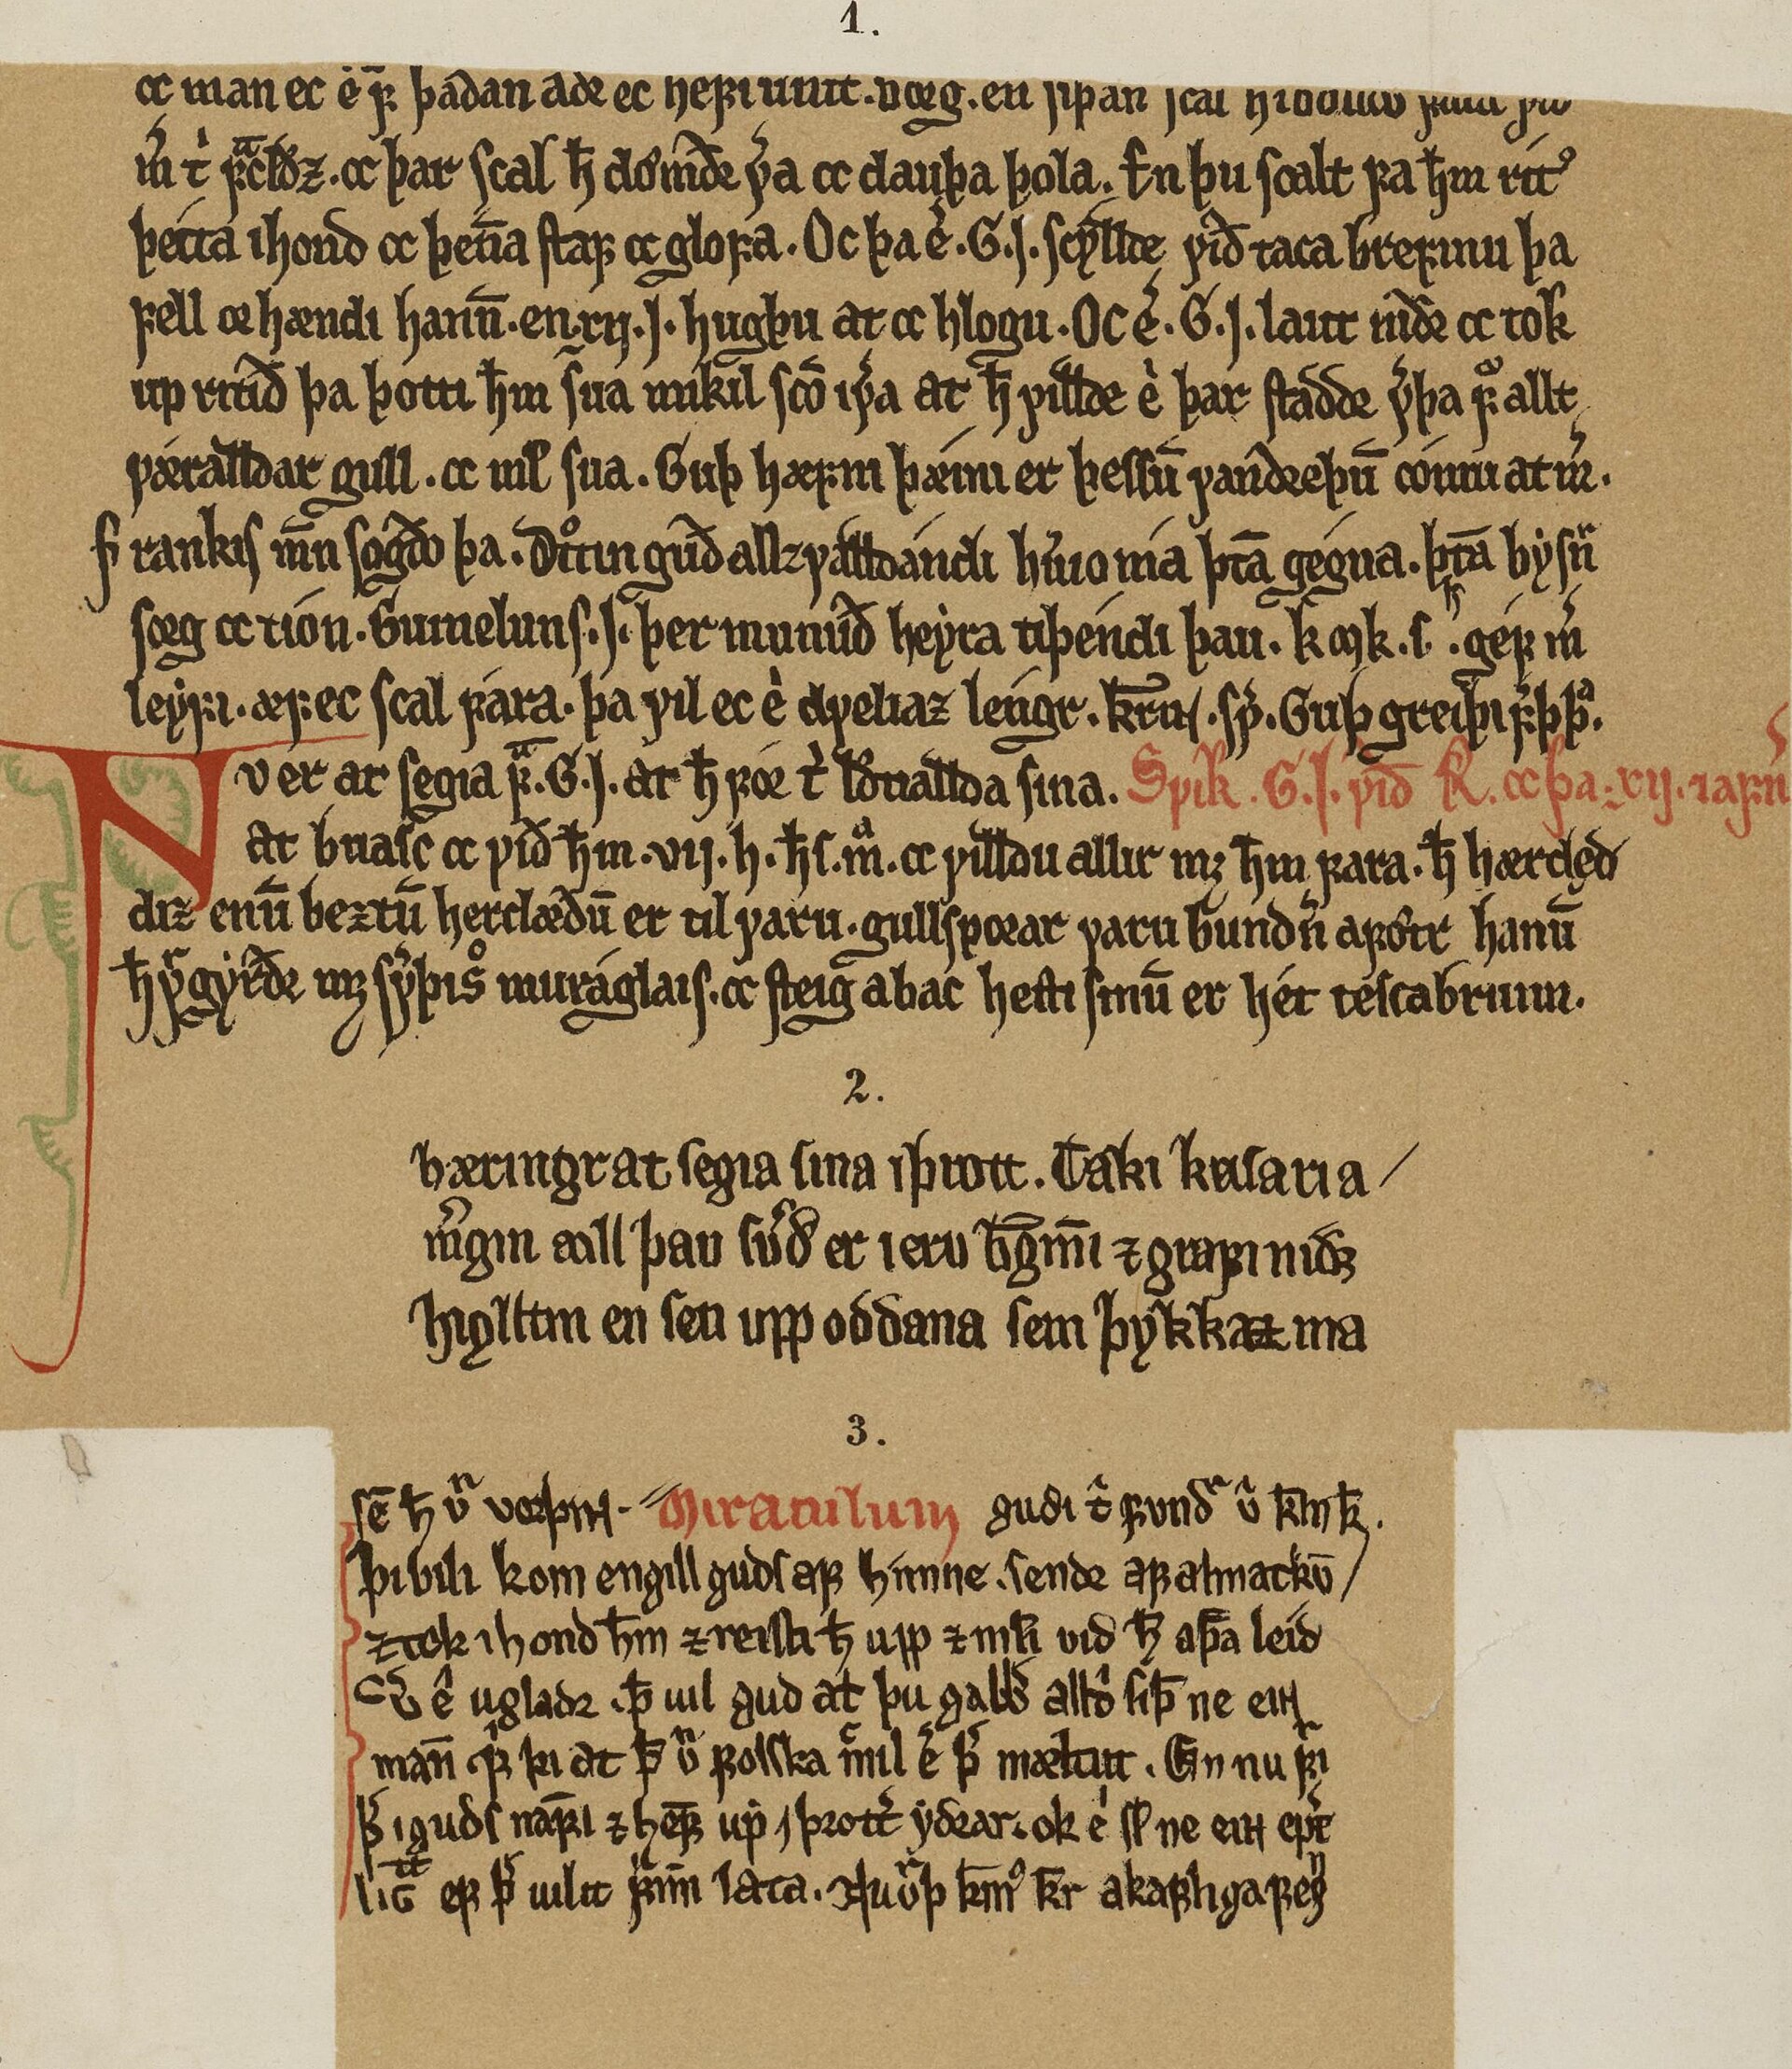 1.
oc man ec ē ꝼ̄ þaðan aðr ec hefi unit. vœg. en siþan scal
m̄ t̍ ꝼ̄cl̄ðz. oc þar scal ħ dómðe y̓a oc dauþa þola. En þu scalt fa ħm rit᾽
þetta i hond oc þen̄a staf oc glofa. Oc þa ē. G. J. scyllde við taca brefinu þa
fell œ hændi hann̄. en. xij. J. hugþu at oc hlogu. Oc ē. G. J. laut niðr oc tok
up ritið þa þotti ħm sua mikil scō i y̓a at ħ villde ė þar staðde y̓þa ꝼ̊ allt
væralldar gull. oc mł sua. Guþ hæfni þæim er þessū vandreþū comu at m̄.
Frankis m̄n sogðo þa. Drottin guð allzvalldandi huio ma þt̄a gegna. þt̄a bysn̄
sœg oc tion. Guineluns. J. þer munuð heyra tiþendi þau. k mk. s. gef m̄
leyfi. æf ec scal fara. þa vil ec ė dveliaz lengr. kr̄n. sv̓. Guþ greiþi ꝼ̓ þþ̓.
Nv er at segia ꝼ̄. G. J. at ħ fœ t̍ h̄buallda sina. Spik. G. J. við K. oc þa. xij. iafn̄
at buasc oc við ħm. vij. h. ħs. m̄. oc villdu allir mꝫ ħm fara. ħ hærcleð
diz enū beztū herclæðū er til varu. gullsporar varu bundn̄ a fótr hanū
ħ y̓gyrðe mꝫ sv̓þi s̊ muraglais. oc steig a bac hesti sinū er hét tescabrunn.
2.
bæringr at segia sina iþrott. Taki keisaria /
m̄gin œll þau sv̓ð er i eru b̄gīni ⁊ grafi niðꝫ
hiolltin en seti upp oddana sem þykkaz ma
3.
sē ħ v̄ vorþin. Miraculum gudi t̍ fund᷑ v̄ k̄mk.
þi bili kom engill guds af himne. sende af almatkū /
⁊ tok i hond ħm ⁊ reisti ħ upp ⁊ mlti vid ħ a þ̄a leid
ē ugladr. þ̄ uil gud at þu gallð alltō siþ ne ein
mān. ꝼ̓ þi at þ̄ v̄ folska mil ē þ̓ mæltut. En nu ꝼ̓i
þ̓ i guds nafni ⁊ hef̄ up iþrott̓ ydrar. ok ė sl ne ein ept̓
lig̅ ef þ̓ uilit ꝼ̓m̄m lata. Nu v̓þ km᾽ k̄r akafliga fegī